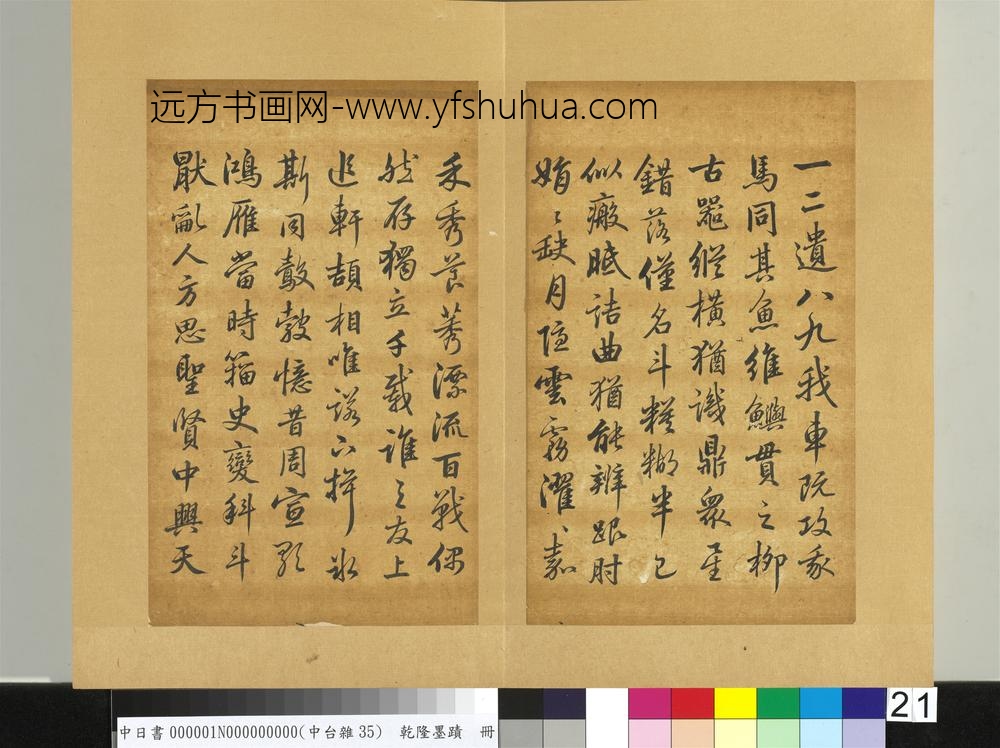 远方书画网-www.yfshuhua.com
一二遺八九我車既攻我
馬同其魚維鱮貫之柳
古器縱橫猶識鼎衆星
錯落僅名斗糢糊半已
似瘢胝詰曲猶能辨跟肘
娟〻缺月隱雲霧濯〻嘉
禾秀莨莠漂流百戰偶
然存獨立千载誰之友上
追軒頡相唯諾下揖冰
斯同鷇㝅憶昔周宣歌
鴻雁當時籀史變科斗
厭亂人方思聖賢中興天
中日書000001N000000000(中台雜35) 乾隆墨蹟 冊
21